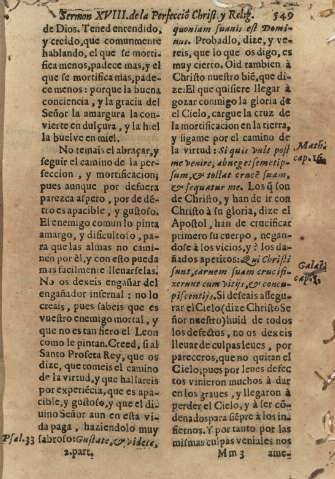 Sermon XVIII. de la Perfecció Christ. y Relig. 549
de Dios. Tened entendido,
y creido, que comunmente
hablando, el que se morti-
fica menos, padece mas, y el
que se mortifica mas, pade-
ce menos: porque la buena
conciencia, y la gracia del
Señor la amargura la con-
vierte en dulçura, y la hiel
la buelve en miel.
No temais el abraçar, y
seguir el camino de la per-
feccion, y mortificacion;
pues aunque por defuera
parezca aspero, por de dē-
tro es apacible, y gustoso.
El enemigo comun lo pinta
amargo, y dificultoso, pa-
ra que las almas no cami-
nen por èl, y con esto pueda
mas facilmente llevarselas.
No os dexeis engañar del
engañador infernal: no lo
creais, pues sabeis que es
vuestro enemigo mortal, y
que no es tan fiero el Leon
como le pintan. Creed, si al
Santo Profeta Rey, que os
dize, que tomeis el camino
de la virtud, y que hallareis
por experiècia, que es apa-
cible, y gustoso, y que el di-
uino Señor aun en esta vi-
da paga, haziendolo muy
Psal. 33 sabroso: Gustate, & videte,
2. part.
quoniam suavis est Domi-
nus. Probadlo, dize, y ve-
reis, que lo que os digo, es
muy cierto. Oid tambien à
Christo nuestro biē, que di-
ze: El que quisiere llegar à
gozar conmigo la gloria de
el Cielo, cargue la cruz de
la mortificacion en la tierra,
y sigame por el camino de
la virtud: Si quis vult post
me venire, abneget semetip-
sum, & tollat crucē suam,
& sequatur me. Los q̃ son
de Christo, y han de ir con
Christo à su gloria, dize el
Apostol, han de crucificar
primero su cuerpo, negan-
dose à los vicios, y à los da-
ñados apetitos: Qui Christi
sunt, carnem suam crucifi-
xerunt cum vitijs, & concu-
piscentijs. Si deseais assegu-
rar el Cielo (dize Christo Se
ñor nuestro) huid de todos
los defectos, no os dexeis
llevar de culpas leues, por
pareceros, que no quitan el
Cielo; pues por leues defec
tos vinieron muchos à dar
en los graves, y llegaron à
perder el Cielo, y à ser cō-
denados para siēpre à los in-
fiernos. Y por tanto por las
mismas culpas veniales nos
Mm 3 ame-
Math.
cap. 16.
Galat.